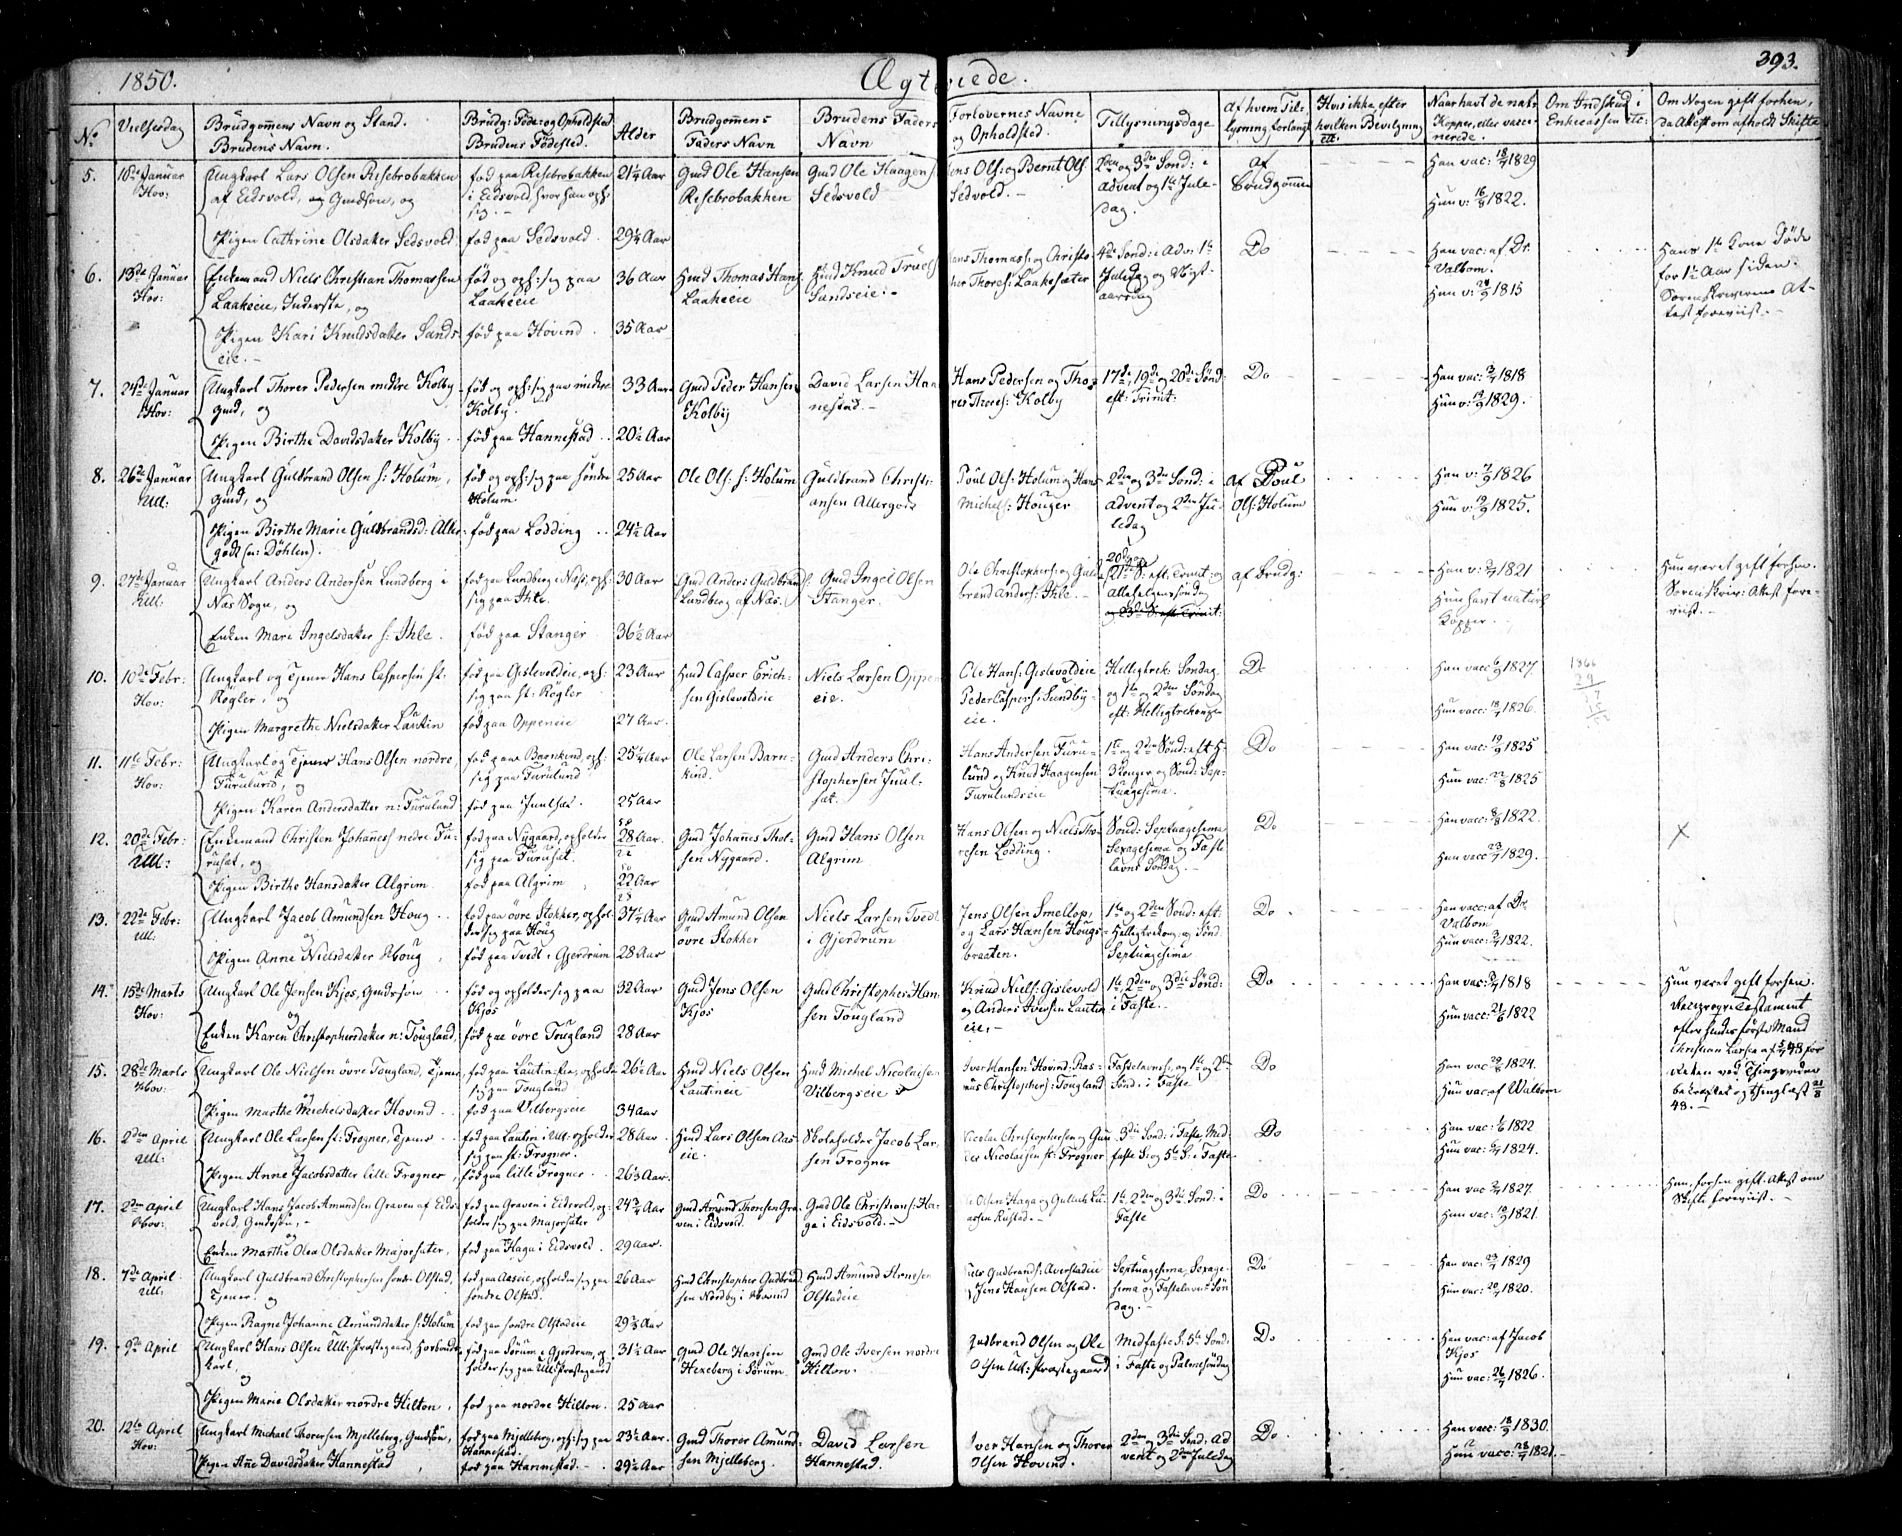 1850.
Ægteviede.
393.
No
Vielsesdag
Brudgommens Navn og Stand.
Brudens Navn.
Brudg: Føde- og Opholdsted
Brudens Fødested.
Alder
Brudgommens
Faders Navn
Brudens Faders
Navn
Forlovernes Navne
og Opholdsted.
Tillysningsdage
Af hvem Til-
lysning forlangt
Hvis ikke, efter
hvilken Bevilgning
Naar havt de nat:
Kopper, eller vacci-
nerede.
Om Indskud i
Enkecassen etc:
Om Nogen gift forhen,
da Attest om afholdt Skifte
5.
10de Januar
Hov:
Ungkarl Lars Olsen Risebrobakken
af Eidsvold, og Gmdsøn, og
Pigen Cathrine Olsdatter Sedsvold
fød paa Risebrobakken
i Eidsvold, hvor han oph:
sig. -
fød paa Sedsvold.
21¼ Aar
29¼ Aar
Gmd Ole Hansen
Risebrobakken
Gmd Ole Haagens:
Sedsvold
Jens Ols: og Bernt Ols:
Sedvold. -
2den og 3die Sønd: i
Advent og 1ste Jule-
dag.
af
Brudgommen
Han vac: 18/7 1829
Hun v: 16/8 1822.
6.
13de Januar
Hov:
Enkemand Niels Christian Thomassen
Laakeeie, Inderste, og
Pigen Kari Knudsdatter Sands-
eie. -
fød og oph: sig paa
Laakeeie
fød paa Hovind.
36 Aar
35 Aar
Hmd Thomas Hans:
Laakeeie
Hmd Knud Truels:
Sandseie. -
Hans Thomass: og Christo-
pher Thores: Laakesæter
4de Sønd: i Adv: 1ste
Juledag og Nyt-
aarsdag
Do
Han vac: af Dr.
Valbom.
Hun v: 1815
Hans 1ste Kone døde
for 1½ Aar siden.
Sorenskriverens At-
test foreviist. -
7.
24de Januar
Hov:
Ungkarl Thorer Pedersen midtre Kolby
Gmd, og
Pigen Birthe Davidsdatter Kolby
fød og oph: sig paa midtre
Kolby.
fød paa Hannestad
33 Aar
20½ Aar
Gmd Peder Hansen
Kolby
David Larsen Han-
nestad. -
Hans Pedersen og Tho-
rer Thores: Kolby
17de, 19de og 20de Sønd:
eft: Trinit:
Do
Han vac: 1818
Hun v: 1829.
8.
26de Januar
Ull:
Ungkarl Guldbrand Olsen s: Holum,
Gmd, og
Pigen Birthe Marie Guldbrandsd: Aller-
godt (n: Døhlen).
fød og oph: sig paa søndre
Holum.
fød paa Lødding
25 Aar
24½ Aar
Ole Ols: s: Holum
Guldbrand Christi-
ansen Allergodt
Poul Ols: Holum og Hans
Michels: Houger
2den og 3die Sønd: i
Advent og 2den Ju-
ledag
af Poul
Ols: Holum
Han v: 1826
Hun v: 1825.
9.
27de Januar
Ull:
Ungkarl Anders Andersen Lundberg i
Næs Sogn, og
Enken Mari Ingelsdatter s: Ihle.
fød paa Lundberg i Næs, oph:
sig paa Ihle.
fød paa Stanger
30 Aar
36½ Aar
Gmd Anders Guldbrands:
Lundberg af Næs.
Gmd Ingel Olsen
Stanger.
Ole Christophers: og Guld-
brand Anders: Ihle. -
20de og
21de S: eft: Trinit: og
Allehelgensøndag
og 23de S: eft: Trinit:
af Brudg:
Han v: 1821
Hun havt naturl:
Kopper.
Hun været gift forhen.
Sorenskriv: Attest fore-
viist. -
10.
10de Febr:
Hov:
Ungkarl og Tjener Hans Caspersen st:
Røgler, og
Pigen Margrethe Nielsdatter Lautin
fød paa Gislevoldeie, oph:
sig paa st: Røgler
fød paa Oppeneie
23 Aar
27 Aar.
Hmd Casper Erich-
sen Gislevoldeie
Niels Larsen Oppen-
eie.
Ole Hans: Gislevoldeie
Peder Caspers: Sundby-
eie.
Helligtrek: Søndag
og 1ste og 2den Søndag
eft: Helligtrekonger
Do
Han vacc: 1827.
Hun vacc: 1826.
1866
29
11.
11te Febr:
Hov:
Ungkarl og Tjener Hans Olsen nordre
Furulund, og
Pigen Karen Andersdatter n: Furulund
fød paa Barnkind, oph:
sig paa Furulund
fød paa Juulsæt.
25¼ Aar
25 Aar
Ole Larsen Barn-
kind.
Gmd Anders Chri-
stophersen Juul-
sæt.
Hans Andersen Furu-
lund og Knud Haagensen
Furulundseie
1ste og 2den Sønd: eft: H-
3Konger og Sønd: Sep-
tuagesima.
Do
Han vac: 1825
Hun vac: 1825
12.
20de Febr:
Ull:
Enkemand Christen Johanness: nedre Fu-
ruset, og
Pigen Birthe Hansdatter Algrim
fød paa Nygaard, opholder
sig paa Furuset.
fød paa Algrim
28 Aar.
22 Aar
Gmd Johannes Thol-
sen Nygaard.
Gmd Hans Olsen
Algrim
Hans Olsen og Niels Tho-
resen Lødding
Sønd: Septuagesima
Sexagesima og Faste-
lavns Søndag. -
Do
Han vacc: 1822.
Hun vacc: 1829.
X
13.
22de Febr:
Ull:
Ungkarl Jacob Amundsen Houg
og
Pigen Anne Nielsdatter Houg
fød paa øvre Stokker, ophol-
der sig paa Houg
fød paa Tvedt i Gjerdrum
37¼ Aar
28 Aar
Gmd Amund Olsen
øvre Stokker
Niels Larsen Tvedt
i Gjerdrum
Jens Olsen Smellop,
og Lars Hansen Hougs-
braaten.
1ste og 2den Sønd: eft:
Helligtrekong: og Sønd:
Septuagesima
Do
Han vacc: af Dr
Valbom
Hun vacc: 1822.
14.
15de Marts
Hov:
Ungkarl Ole Jensen Kjos, Gmdsøn
og
Enken Karen Christophersdatter n: Tougland,
fød og opholder sig paa
Kjos
fød paa øvre Tougland
32 Aar
28 Aar
Gmd Jens Olsen
Kjos
Gmd Christopher Han-
sen Tougland
Knud Niels: Gislevold
og Anders Iversen Lautin-
eie. -
1ste, 2den og 3die Sønd:
i Faste. -
Do
Han vac: 1818
Hun vacc: 1822
Hun været gift forhen.
Reciproqve Testament
efter hendes første Mand
Christian Larsen af 48 for
Retten ved Thingvidne
bekræftet og thinglæst
48. -
15.
28de Marts
Hov:
Ungkarl Ole Nielsen øvre Tougland, Tjener,
og
Pigen Marthe Michelsdatter Hovind
fød paa Lautineie, opholder
sig paa Tougland
fød paa Vilbergseie
26½ Aar
34 Aar
Hmd Niels Olsen
Lautineie
Hmd Michel Nicolaisen
Vilbergseie
Iver Hansen Hovind, Ras-
mus Christophers: Tougland
Fastelavns:, og 1ste og 2den
Sønd: i Faste
Do
Han vac: 1824.
Hun vac: af Walbom
16.
2den April
Ull:
Ungkarl Ole Larsen st: Frogner, Tjener
og
Pigen Anne Jacobsdatter lille Frogner
fød paa Lautin i Ull: opholder
sig paa st: Frogner.
fød paa lille Frogner
28 Aar
26½ Aar.
Hmd Lars Olsen Aas-
eie.
Skoleholder Jacob Lar-
sen Frogner
Nicolai Christophersen og Gun-
der Nicolaisen st: Frogner
3die Sønd: i Faste, Mid-
faste S: og 5te S: i Faste
Do
Han vac: 1822
Hun vac: 1824.
17.
2den April
Hov:
Ungkarl Hans Jacob Amundsen Graven af Eids-
vold, Gmdsøn, -
og
Enken Marthe Olea Olsdatter Majorsæter,
fød paa Graven i Eidsvold, op-
holder sig paa Majorsæter
fød paa Haga i Eidsvold
24¾ Aar
29 Aar.
Gmd Amund Thoresen Gra-
ven i Eidsvold
Gmd Ole Christians: Ha-
ga i Eidsvold. -
Ole Olsen Haga og Gulbrk Lu-
aasen Rustad. -
1ste, 2den og 3die Sønd: i
Faste
Do
Han vac: 1827.
Hun vac: 1821.
Hun, forhen gift. Attest om
Skifte foreviist. -
18.
7de April
Ull:
Ungkarl Guldbrand Christophersen søndre Olstad,
Tjener, og
Pigen Ragne Johanne Amundsdatter s: Holum
fød paa Aaseie, opholder sig paa
søndre Olstad.
fød paa søndre Olstadeie
26 Aar
29⅔ Aar
Hmd Christopher Gudbrand-
sen Nordby i Hovind
Hmd Amund Arnesen
Olstadeie
Gudbrands: Averstadeie
Jens Hansen Olstad.
Septuagesima, Sexage-
sima og Fastelavns Søn-
dag. -
Do
Han vac: 1829
Hun vac: 1820.
19.
9de April
Ungkarl Hans Olsen Ull: Præstegaard, Forbuds-
karl,
og
Pigen Marie Olsdatter nordre Hilton,
fød paa Sørum i Gjerdrum, op-
holder sig paa Ull: Præstegaard
fød paa nordre Hilton.
31½ Aar
25 Aar
Gmd Ole Hansen
Hexeberg i Sørum
Gmd Ole Iversen nordre
Hilton.
Gudbrand Olsen og Ole
Olsen Ull: Præstegaard
Midfaste S: 5te Sønd:
i Faste og Palmesøndag
Do
Han vac: af Jacob
Kjos
Hun vac: 1826.
20.
12te April
Hov:
Ungkarl Michael Thorersen Mjelleberg, Gmdsøn,
og
Pigen Ane Davidsdatter Hannestad
fød paa Mjelleberg, oph: sig paa
Hannestad.
fød paa Hannestad. -
23½ Aar.
29½ Aar
Gmd Thorer Amund-
sen Mjelleberg.
David Larsen
Hannestad.
Iver Hansen og Thorer
Olsen Hovind.
2den og 3die Sønd: Ad-
vent og 2den Juledag
Do
Han vacc: 1830.
Hun vacc: 1821.